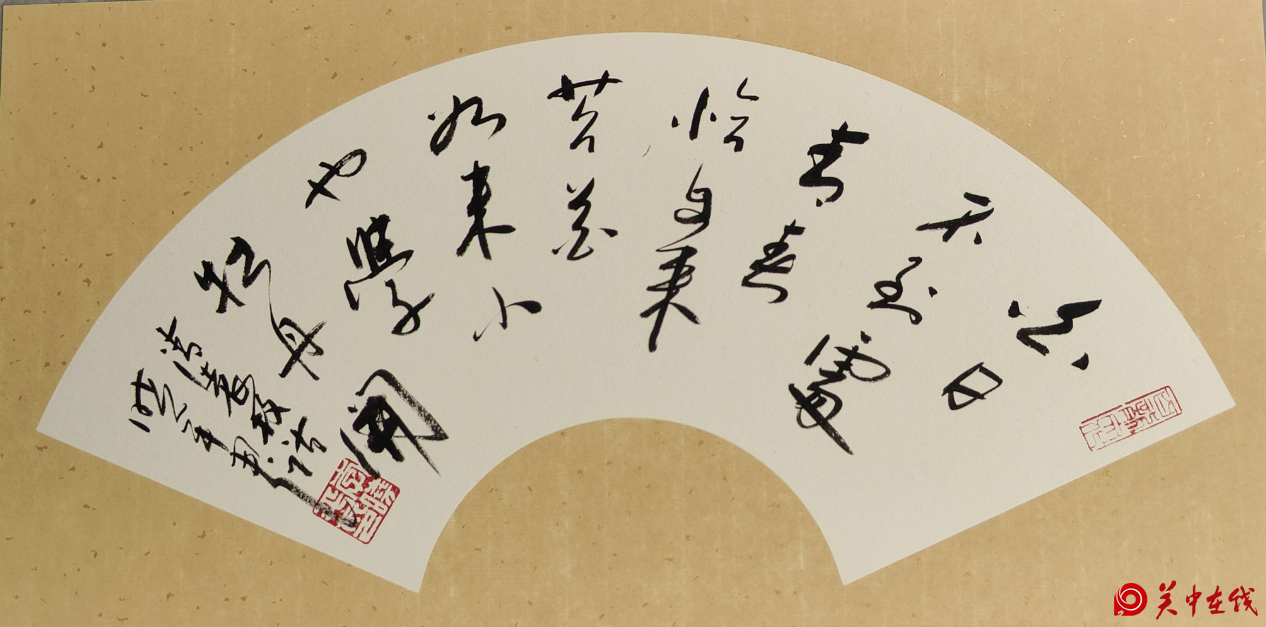 白日
不到處
青春
恰自来
苔花
如米小
也學
牡丹開
清袁枚诗
关中在线